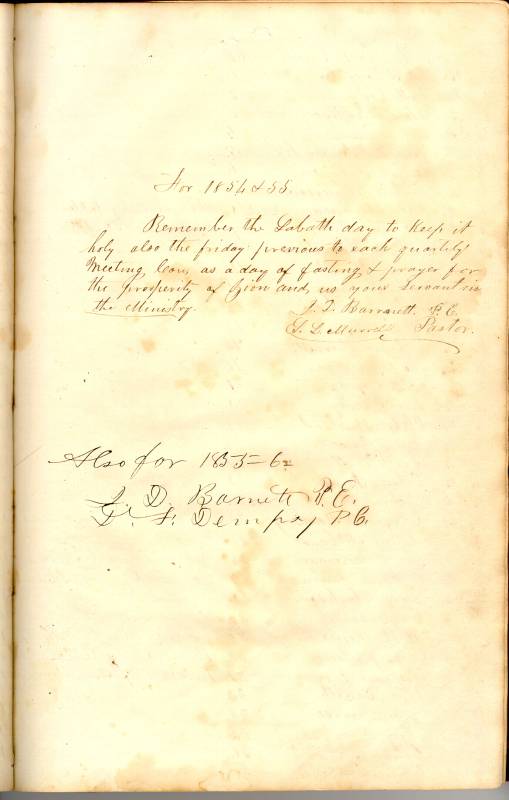 For 1854 & 55.
Remember the Sabath day to Keep it
holy also the friday previous to each quaitily
Meeting, as a day of fasting & prayer for
the prosperity of Zion and, us your servants in
the Ministry.
J. D. Barnett. P. E.
Pastor.
Also for 1855-6
J. D. Barnett P. E.
Dempsy P C.